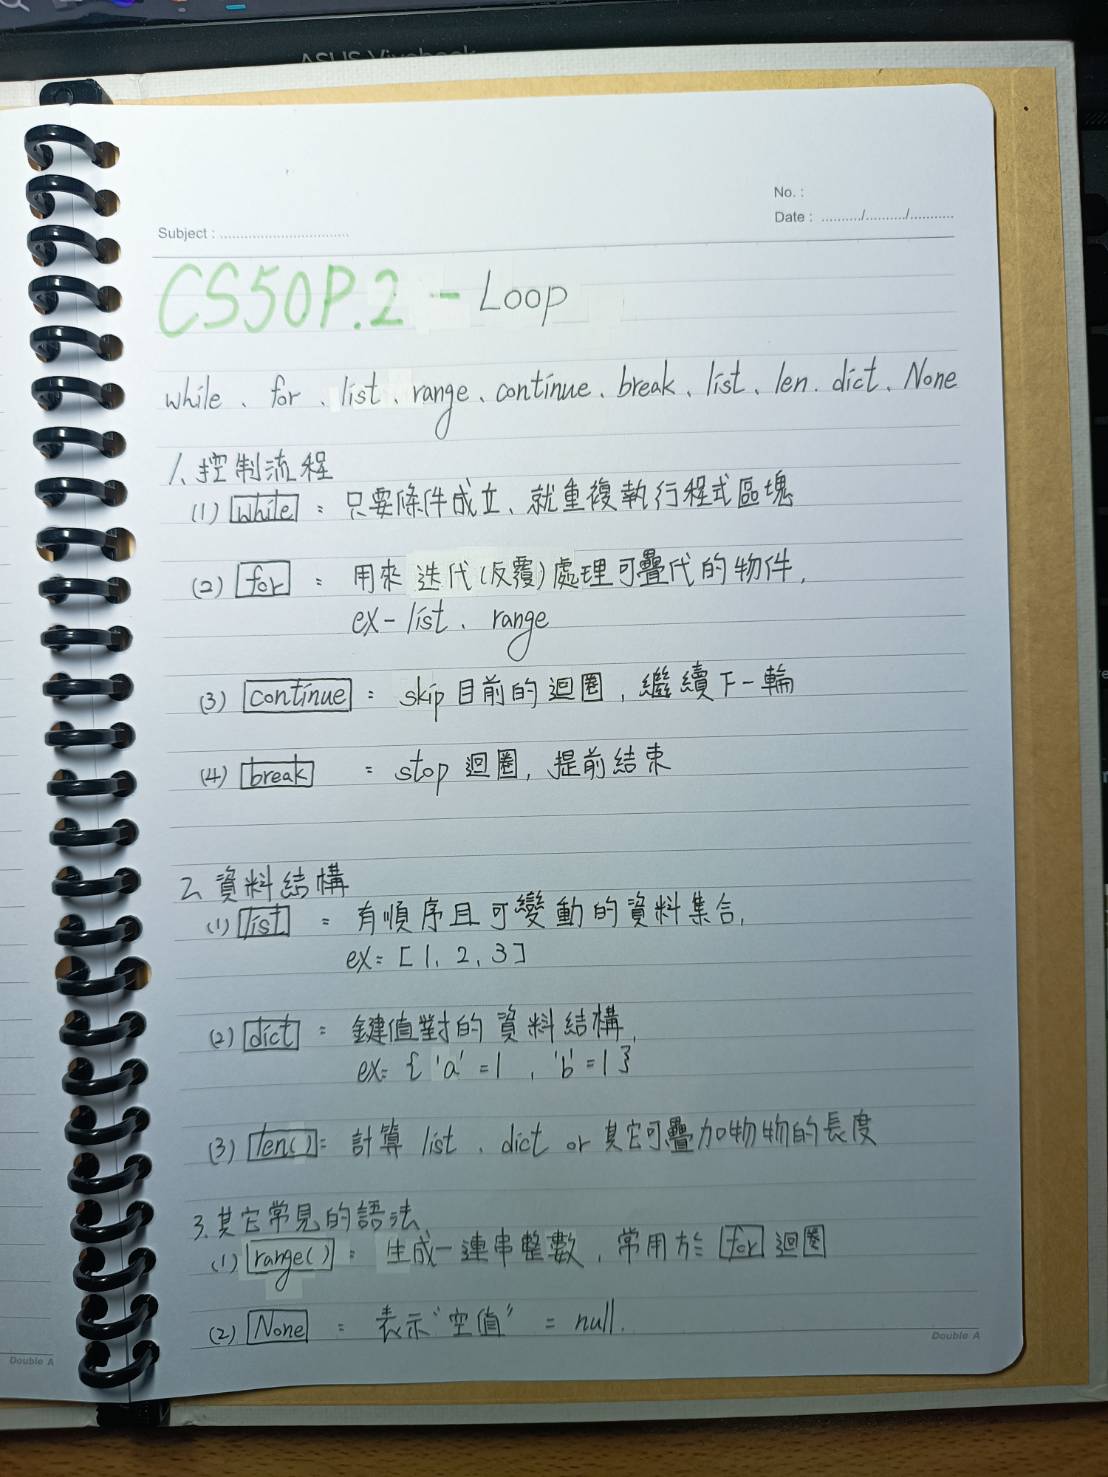 ASUS Vivobook
No. :
Date : ........../........../...........
Subject : ................................
CS50P.2 - Loop
while、for、list、range、continue、break、list、len、dict、None
1、控制流程
(1) while : 只要條件成立、就重複執行程式區塊
(2) for : 用來 迭代(反覆)處理可疊代的物件,
ex- list、range
(3) continue : skip 目前的迴圈, 繼續下一輪
(4) break : stop 迴圈, 提前結束
2、資料結構
(1) list : 有順序且可變動的資料集合,
ex: [1, 2, 3]
(2) dict : 鍵值對的資料結構,
ex: { 'a' = 1 , 'b' = 1 }
(3) len() : 計算 list、dict or 其它可疊加物物的長度
3.其它常見的語法
(1) range() : 生成一連串整數, 常用於 for 迴圈
(2) None : 表示"空值" = null.
Double A
Double A